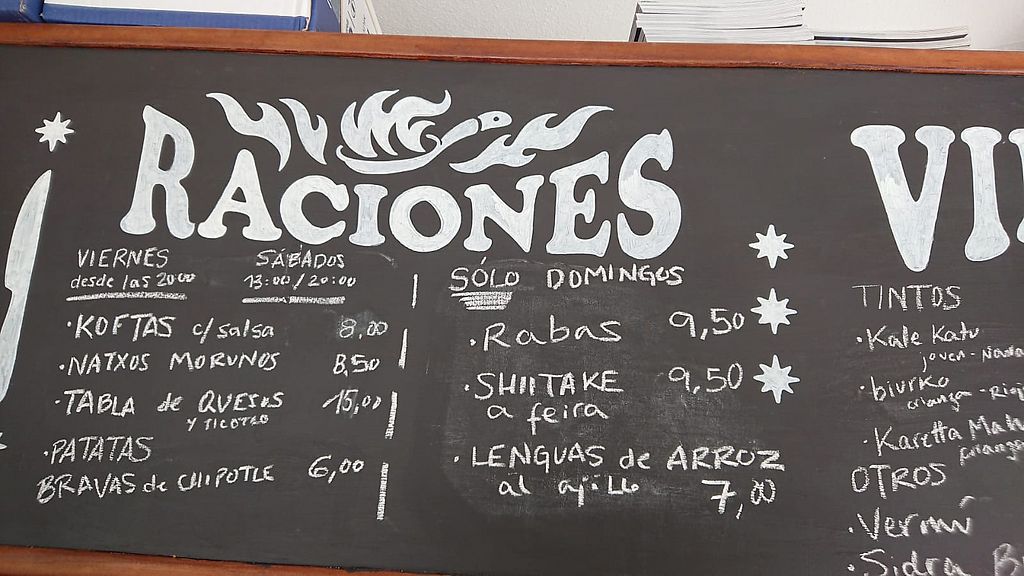 RACIONES
VIERNES
desde las 20:00
SÁBADOS
13:00/20:00
·KOFTAS c/salsa 8,00
·NATXOS MORUNOS 8,50
·TABLA de QUESOS 15,00
·PATATAS
BRAVAS de CHIPOTLE 6,00
SÓLO DOMINGOS
·Rabas 9,50
·SHIITAKE 9,50
a feira
·LENGUAS de ARROZ
al ajillo 7,00
VI
TINTOS
·Kale Katu
joven-
·biurko
crianza-
·Karetta
crianza
OTROS
·Vermú
·Sidra B